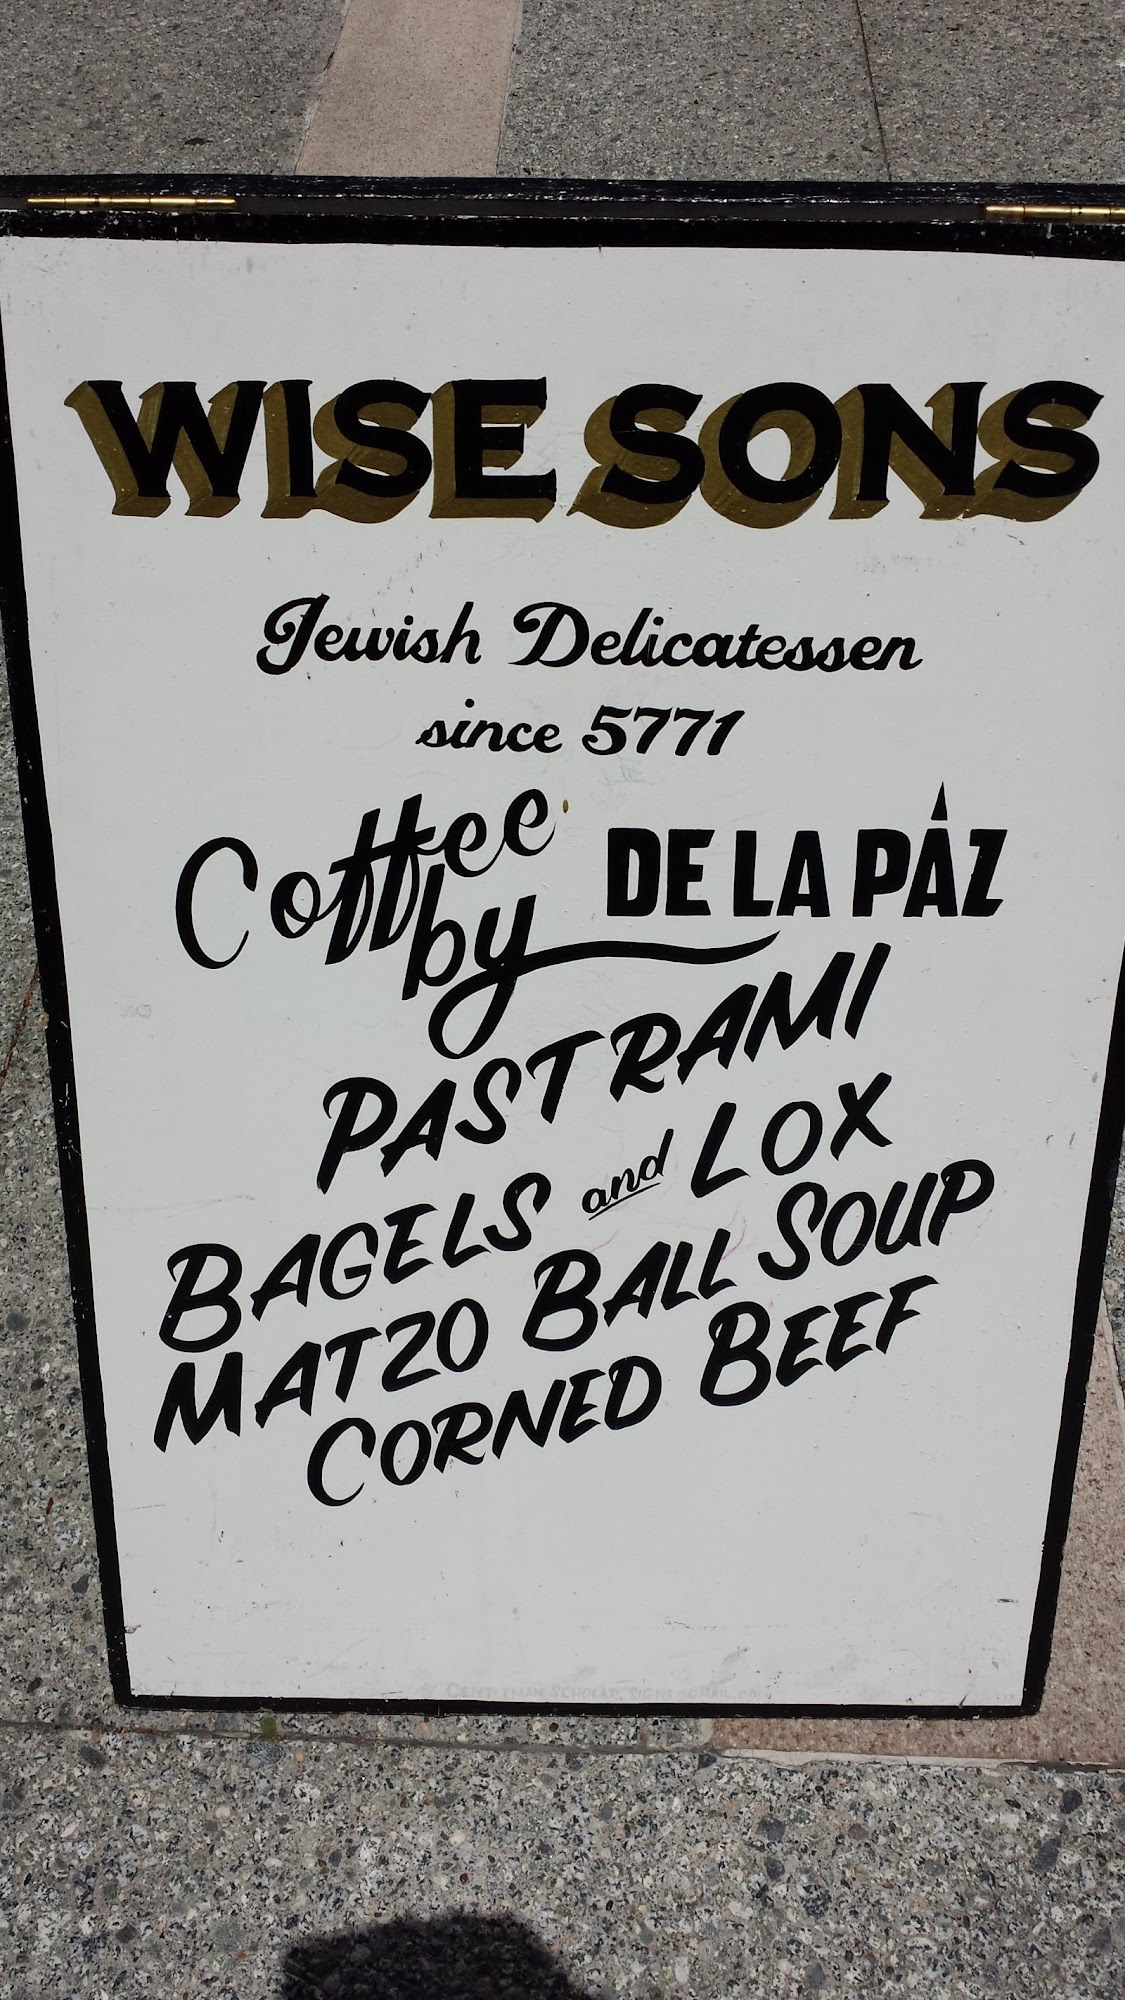 WISE SONS
Jewish Delicatessen
since 5771
Coffee by DE LA PÁZ
PASTRAMI
BAGELS and LOX
MATZO BALL SOUP
CORNED BEEF